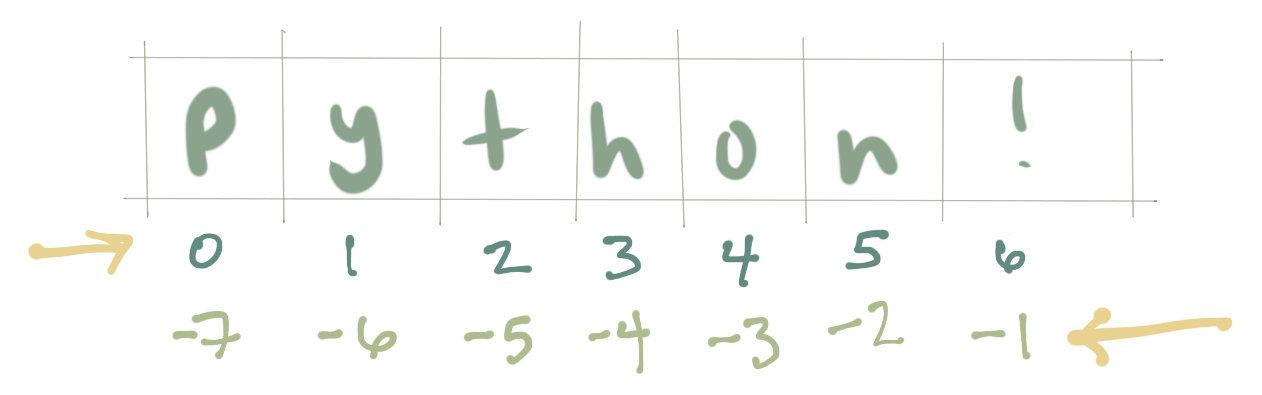 p y t h o n !
0 1 2 3 4 5 6
-7 -6 -5 -4 -3 -2 -1